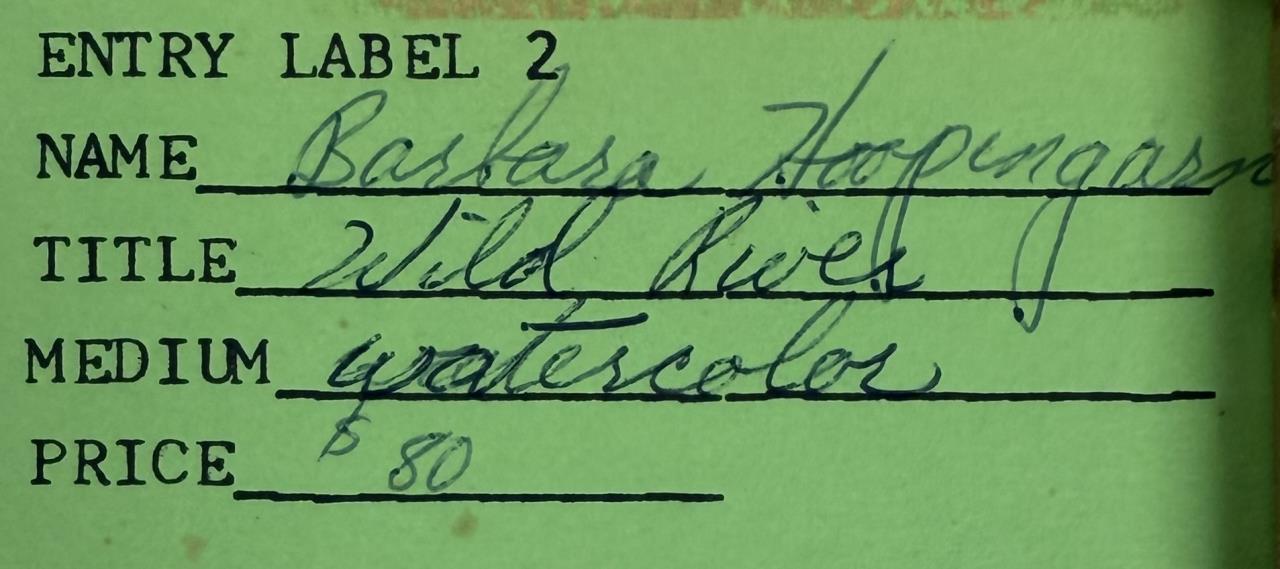 ENTRY LABEL 2
NAME Barbara Hoopingarn
TITLE Wild River
MEDIUM watercolor
PRICE $80